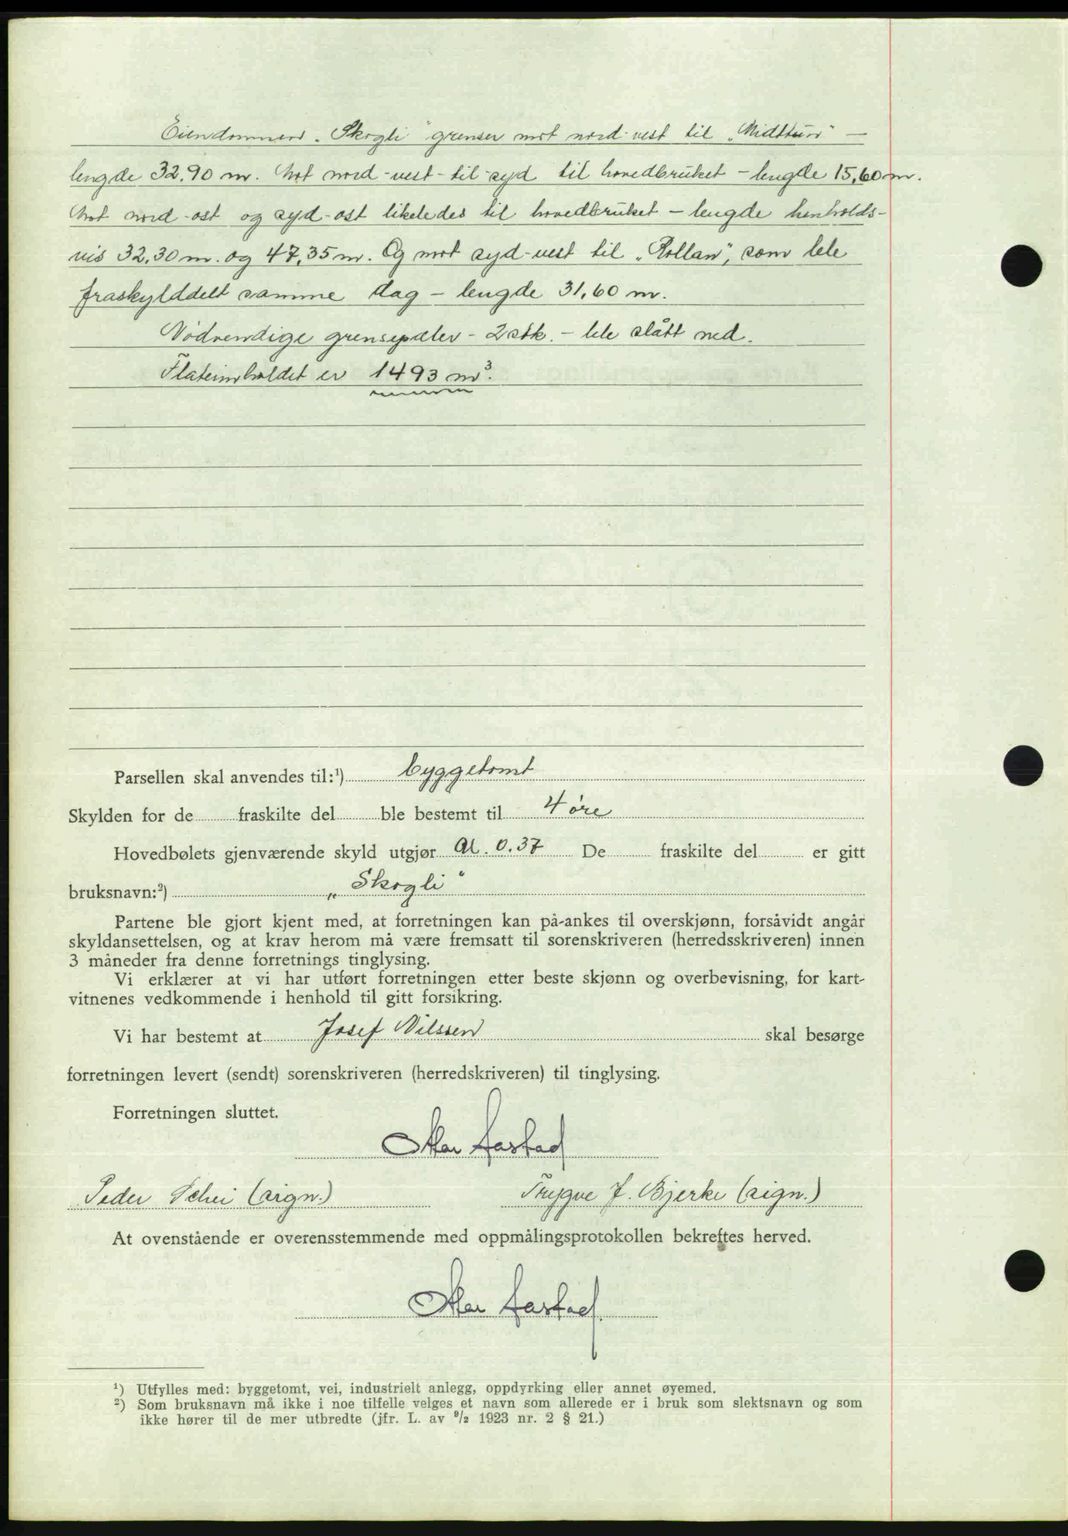 Eiendommen „Skogli" grenser mot nord-vest til „Midttun" —
lengde 32,90 m. Mot nord-vest-til-syd til hovedbruket - lengde 15,60 m.
Mot nord-ost og syd-ost likeledes til hovedbruket - lengde henholds-
vis 32,30 m. og 47,35 m. Og mot syd-vest til „Rollan", som ble
fraskylddelt samme dag - lengde 31,60 m.
Nødvendige grensepæler - 2 stk. - ble slått ned.
Flateinholdet er 1493 m³.
Parsellen skal anvendes til:¹) byggetomt
Skylden for de fraskilte del ble bestemt til 4 øre
Hovedbølets gjenværende skyld utgjør 0.37 De fraskilte del er gitt
bruksnavn:²) „Skogli"
Partene ble gjort kjent med, at forretningen kan på-ankes til overskjønn, forsåvidt angår
skyldansettelsen, og at krav herom må være fremsatt til sorenskriveren (herredsskriveren) innen
3 måneder fra denne forretnings tinglysing.
Vi erklærer at vi har utført forretningen etter beste skjønn og overbevisning, for kart-
vitnenes vedkommende i henhold til gitt forsikring.
Vi har bestemt at Josef Nilssen skal besørge
forretningen levert (sendt) sorenskriveren (herredskriveren) til tinglysing.
Forretningen sluttet.
Aastad
Peder Schei (sign.) Trygve J. Bjerke (sign.)
At ovenstående er overensstemmende med oppmålingsprotokollen bekreftes herved.
Aastad
¹) Utfylles med: byggetomt, vei, industrielt anlegg, oppdyrking eller annet øyemed.
²) Som bruksnavn må ikke i noe tilfelle velges et navn som allerede er i bruk som slektsnavn og som
ikke hører til de mer utbredte (jfr. L. av ⁹/₂ 1923 nr. 2 § 21.)